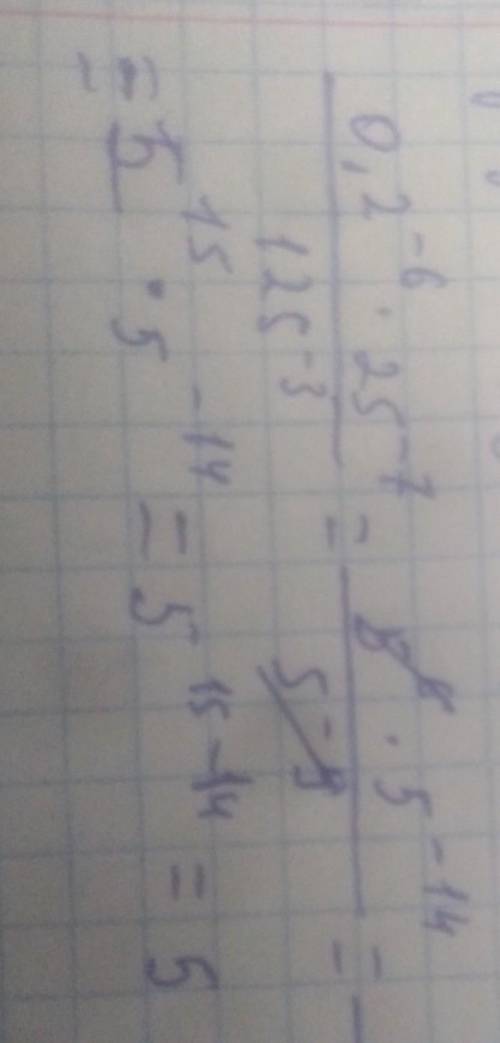 0,2^-6 · 25^-7 / 125^-3 = 5^6 · 5^-14 / 5^-9 =
= 5^15 · 5^-14 = 5^15-14 = 5